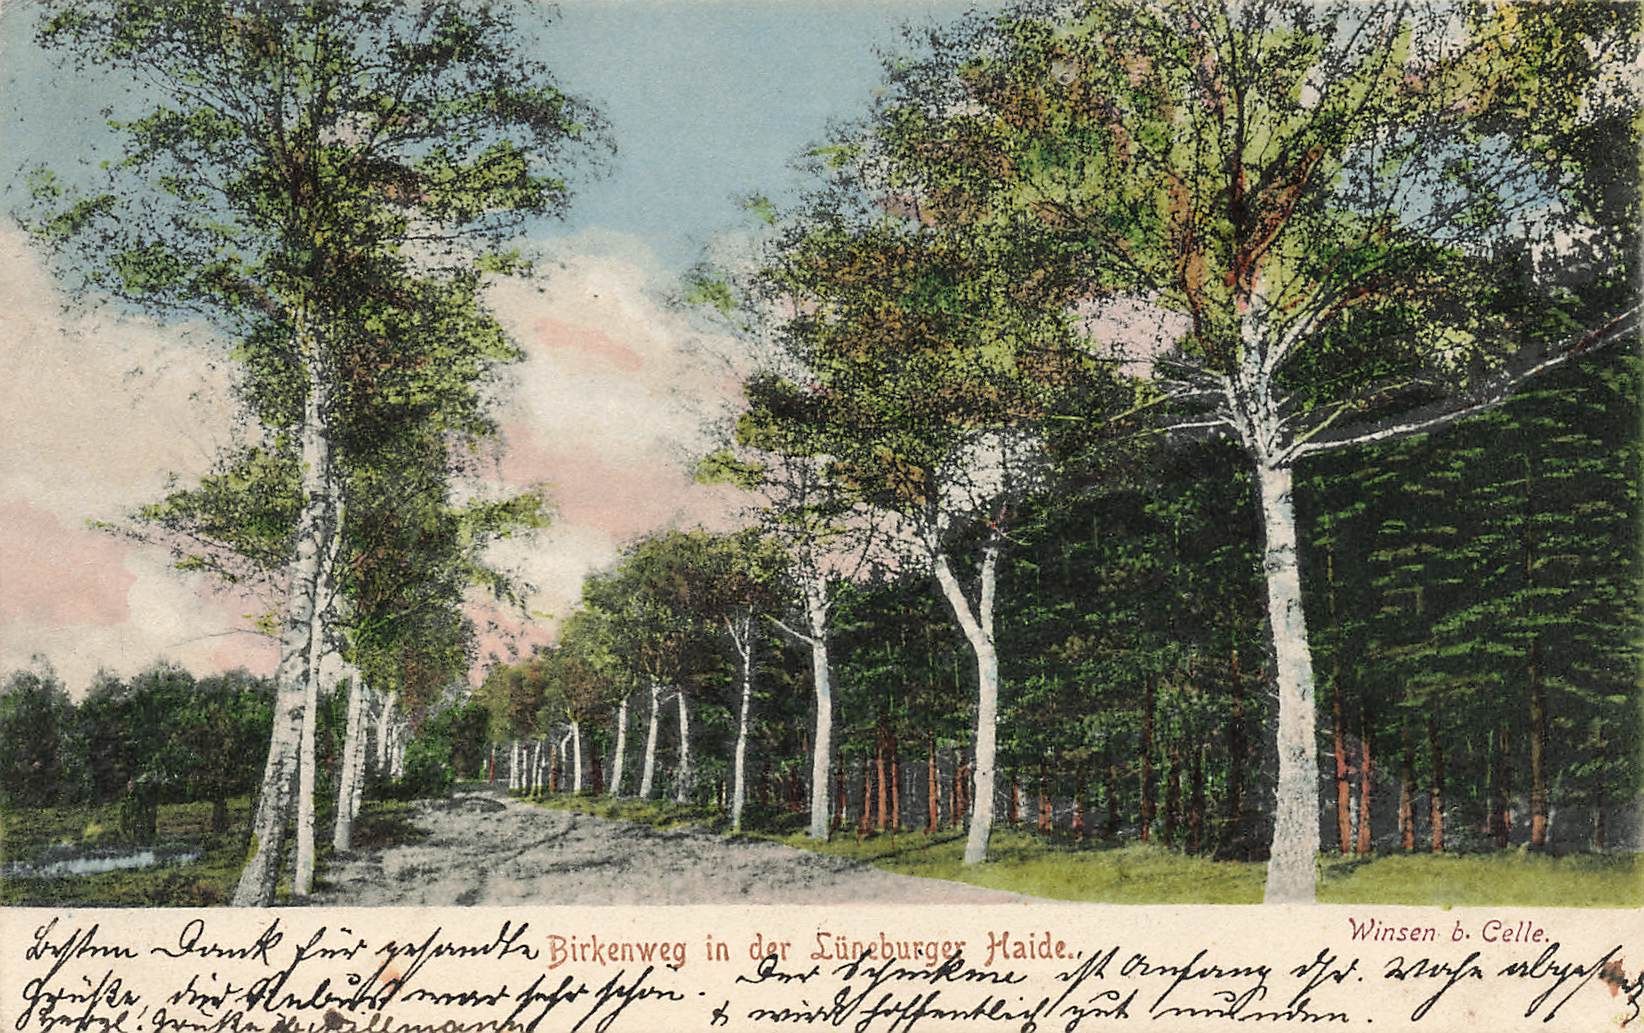 Birkenweg in der Lüneburger Haide.
Winsen b. Celle.
Besten Dank für gesandte
Grüße, die Rebus war sehr schön.
Herzl. Grüße
Der Schinken ist Anfang dsr. Woche
& wird hoffentlich gut munden.